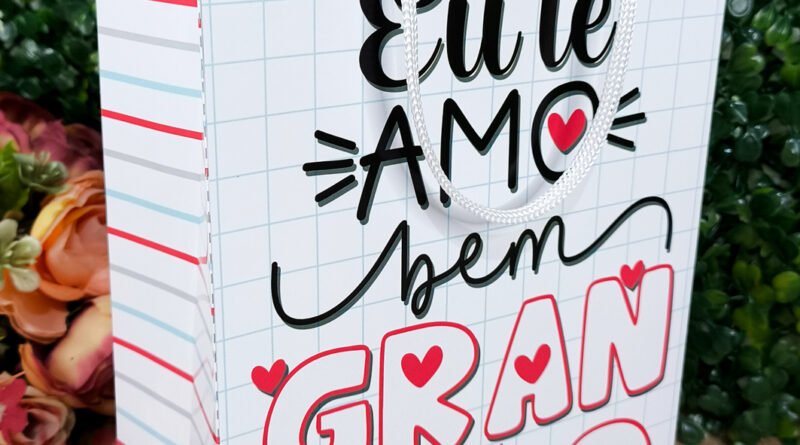 Eu te
AMO
bem
GRAN